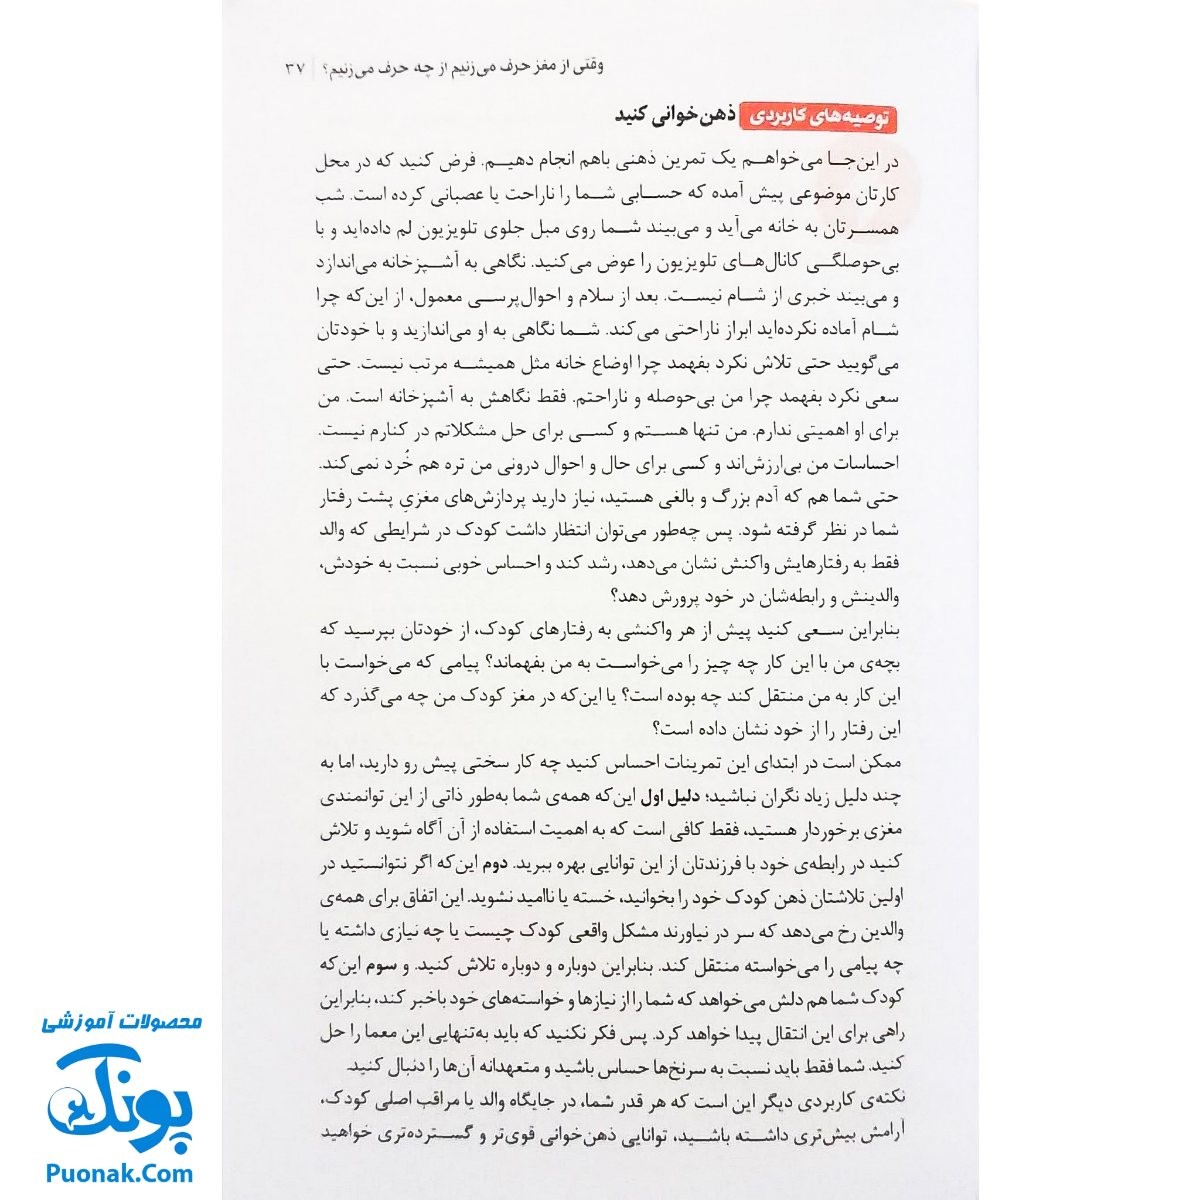 وقتی از مغز حرف می‌زنیم از چه حرف می‌زنیم؟ | ۳۷
توصیه‌های کاربردی ذهن‌خوانی کنید
در این‌جا می‌خواهم یک تمرین ذهنی باهم انجام دهیم. فرض کنید که در محل
کارتان موضوعی پیش آمده که حسابی شما را ناراحت یا عصبانی کرده است. شب
همسرتان به خانه می‌آید و می‌بیند شما روی مبل جلوی تلویزیون لم داده‌اید و با
بی‌حوصلگی کانال‌های تلویزیون را عوض می‌کنید. نگاهی به آشپزخانه می‌اندازد
و می‌بیند خبری از شام نیست. بعد از سلام و احوال‌پرسی معمول، از این‌که چرا
شام آماده نکرده‌اید ابراز ناراحتی می‌کند. شما نگاهی به او می‌اندازید و با خودتان
می‌گویید حتی تلاش نکرد بفهمد چرا اوضاع خانه مثل همیشه مرتب نیست. حتی
سعی نکرد بفهمد چرا من بی‌حوصله و ناراحتم. فقط نگاهش به آشپزخانه است. من
برای او اهمیتی ندارم. من تنها هستم و کسی برای حل مشکلاتم در کنارم نیست.
احساسات من بی‌ارزش‌اند و کسی برای حال و احوال درونی من تره هم خُرد نمی‌کند.
حتی شما هم که آدم بزرگ و بالغی هستید، نیاز دارید پردازش‌های مغزیِ پشت رفتار
شما در نظر گرفته شود. پس چه‌طور می‌توان انتظار داشت کودک در شرایطی که والد
فقط به رفتارهایش واکنش نشان می‌دهد، رشد کند و احساس خوبی نسبت به خودش،
والدینش و رابطه‌شان در خود پرورش دهد؟
بنابراین سعی کنید پیش از هر واکنشی به رفتارهای کودک، از خودتان بپرسید که
بچه‌ی من با این کار چه چیز را می‌خواست به من بفهماند؟ پیامی که می‌خواست با
این کار به من منتقل کند چه بوده است؟ یا این‌که در مغز کودک من چه می‌گذرد که
این رفتار را از خود نشان داده است؟
ممکن است در ابتدای این تمرینات احساس کنید چه کار سختی پیش رو دارید، اما به
چند دلیل زیاد نگران نباشید؛ دلیل اول این‌که همه‌ی شما به‌طور ذاتی از این توانمندی
مغزی برخوردار هستید، فقط کافی است که به اهمیت استفاده از آن آگاه شوید و تلاش
کنید در رابطه‌ی خود با فرزندتان از این توانایی بهره ببرید. دوم این‌که اگر نتوانستید در
اولین تلاشتان ذهن کودک خود را بخوانید، خسته یا ناامید نشوید. این اتفاق برای همه‌ی
والدین رخ می‌دهد که سر در نیاورند مشکل واقعی کودک چیست یا چه نیازی داشته یا
چه پیامی را می‌خواسته منتقل کند. بنابراین دوباره و دوباره تلاش کنید. و سوم این‌که
کودک شما هم دلش می‌خواهد که شما را از نیازها و خواسته‌های خود باخبر کند، بنابراین
راهی برای این انتقال پیدا خواهد کرد. پس فکر نکنید که باید به‌تنهایی این معما را حل
کنید. شما فقط باید نسبت به سرنخ‌ها حساس باشید و متعهدانه آن‌ها را دنبال کنید.
نکته‌ی کاربردی دیگر این است که هر قدر شما، در جایگاه والد یا مراقب اصلی کودک،
آرامش بیش‌تری داشته باشید، توانایی ذهن‌خوانی قوی‌تر و گسترده‌تری خواهید
محصولات آموزشی
پونک
Puonak.Com